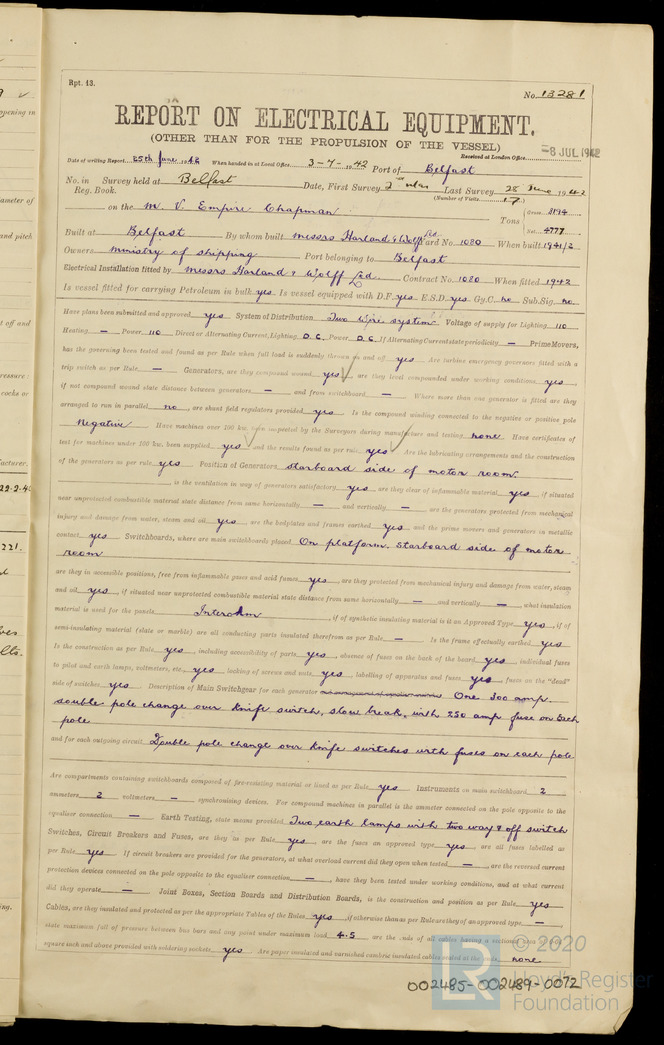 Rpt. 13.
No. 13281
REPORT ON ELECTRICAL EQUIPMENT.
(OTHER THAN FOR THE PROPULSION OF THE VESSEL)
Received at London Office -8 JUL 1942
Date of writing Report 25th June 1942 When handed in at Local Office 3-7-1942 Port of Belfast
No. in Reg. Book. Survey held at Belfast Date, First Survey Last Survey 25 June 1942
(Number of Visits 17)
on the M. V. Empire Chapman Tons Gross Net 4777
Built at Belfast By whom built Messrs Harland & Wolff Ltd Yard No. 1080 When built 1941/2
Owners Ministry of Shipping Port belonging to Belfast
Electrical Installation fitted by Messrs Harland & Wolff Ltd. Contract No. 1080 When fitted 1942
Is vessel fitted for carrying Petroleum in bulk yes Is vessel equipped with D.F. yes E.S.D. yes Gy.C. no Sub.Sig. no
Have plans been submitted and approved yes System of Distribution Two wire system Voltage of supply for Lighting 110
Heating — Power 110 Direct or Alternating Current, Lighting D.C. Power D.C. If Alternating Current state periodicity — Prime Movers,
has the governing been tested and found as per Rule when full load is suddenly thrown on and off yes Are turbine emergency governors fitted with a
trip switch as per Rule — Generators, are they compound wound yes are they level compounded under working conditions yes
if not compound wound state distance between generators — and from switchboard — Where more than one generator is fitted are they
arranged to run in parallel no are shunt field regulators provided yes Is the compound winding connected to the negative or positive pole
Negative Have machines over 100 kw. been inspected by the Surveyors during manufacture and testing none Have certificates of
test for machines under 100 kw. been supplied yes and the results found as per rule yes Are the lubricating arrangements and the construction
of the generators as per rule yes Position of Generators starboard side of motor room
is the ventilation in way of generators satisfactory yes are they clear of inflammable material yes if situated
near unprotected combustible material state distance from same horizontally — and vertically — are the generators protected from mechanical
injury and damage from water, steam and oil yes are the bedplates and frames earthed yes and the prime movers and generators in metallic
contact yes Switchboards, where are main switchboards placed On platform, Starboard side of motor
room
are they in accessible positions, free from inflammable gases and acid fumes yes are they protected from mechanical injury and damage from water, steam
and oil yes if situated near unprotected combustible material state distance from same horizontally — and vertically — what insulation
material is used for the panels if of synthetic insulating material is it an Approved Type yes if of
semi-insulating material (slate or marble) are all conducting parts insulated therefrom as per Rule — Is the frame effectually earthed yes
Is the construction as per Rule yes including accessibility of parts yes absence of fuses on the back of the board yes individual fuses
to pilot and earth lamps, voltmeters, etc. yes locking of screws and nuts yes labelling of apparatus and fuses yes fuses on the "dead"
side of switches yes Description of Main Switchgear for each generator One 300 amp.
double pole change over knife switch, slow break, with 250 amp fuse on each
pole
and for each outgoing circuit Double pole change over knife switches with fuses on each pole
Are compartments containing switchboards composed of fire-resisting material or lined as per Rule yes Instruments on main switchboard 2
ammeters 2 voltmeters — synchronising devices. For compound machines in parallel is the ammeter connected to the pole opposite to the
equaliser connection — Earth Testing, state means provided Two earth lamps with two way & off switch
Switches, Circuit Breakers and Fuses, are they as per Rule yes are the fuses an approved type yes are all fuses labelled as
per Rule yes If circuit breakers are provided for the generators, at what overload current did they open when tested — are the reversed current
protection devices connected on the pole opposite to the equaliser connection — have they been tested under working conditions, and at what current
did they operate — Joint Boxes, Section Boards and Distribution Boards, is the construction and position as per Rule yes
Cables, are they insulated and protected as per the appropriate Tables of the Rules yes if otherwise than as per Rule are they of an approved type —
state maximum fall of pressure between bus bars and any point under maximum load 4.5 are the ends of all cables having a sectional area of
square inch and above provided with soldering sockets yes Are paper insulated and varnished cambric insulated cables sealed at the ends none
© 2020
LR
Lloyd's Register
Foundation
002485-002489-0072